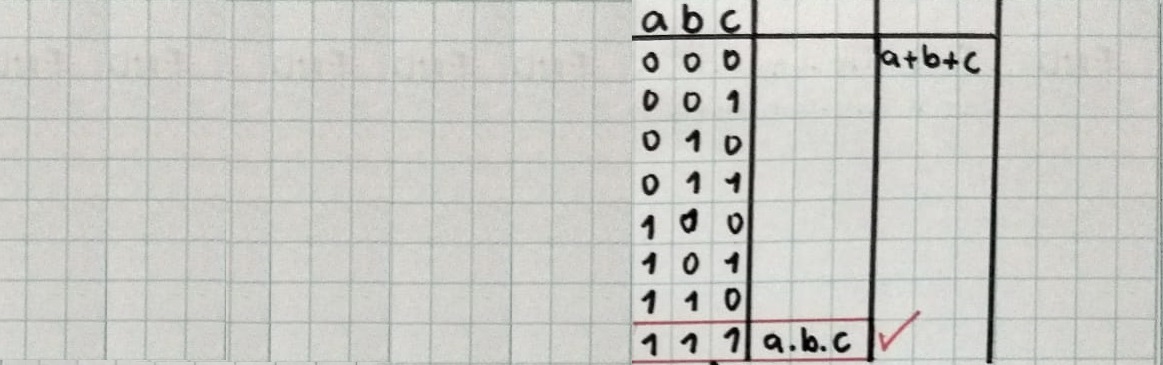 a b c
0 0 0 a+b+c
0 0 1
0 1 0
0 1 1
1 0 0
1 0 1
1 1 0
1 1 1 a.b.c ✓